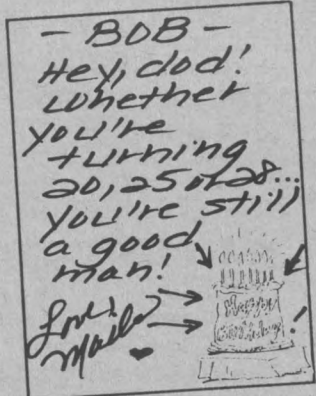 - BOB -
Hey, dad!
Whether
you're
turning
20, 25 or 28...
you're still
a good
man!
Love,
Happy
Birthday!